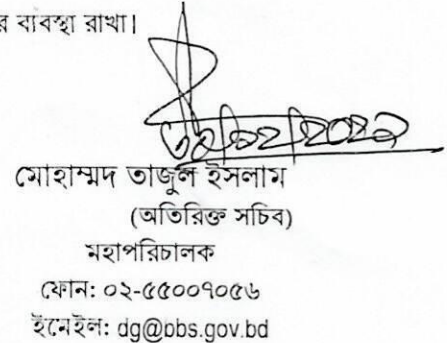 র ব্যবস্থা রাখা।
মোহাম্মদ তাজুল ইসলাম
(অতিরিক্ত সচিব)
মহাপরিচালক
ফোন: ০২-৫৫০০৭০৫৬
ইমেইল: dg@bbs.gov.bd